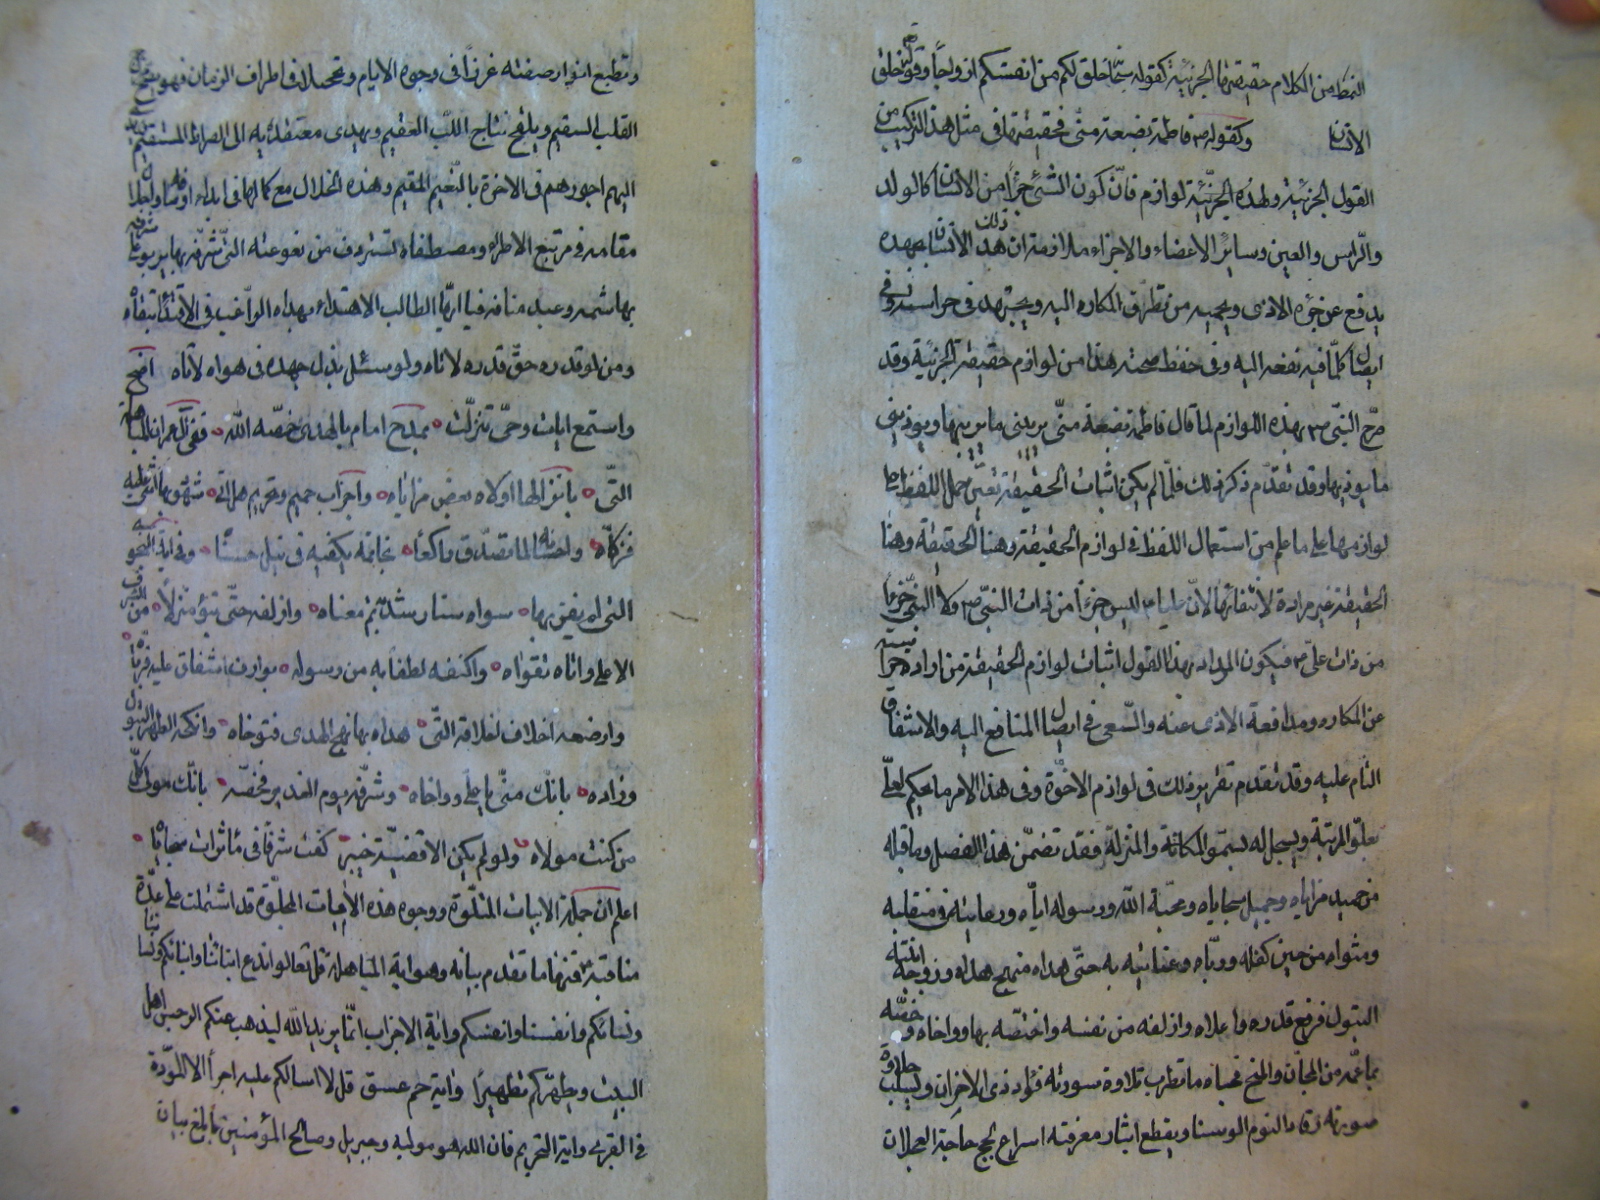 النمط من الكلام حقيقتها الجزئية كقوله تعالى خلق لكم من انفسكم ازواجا وقوله خلق
الانسان وكقوله ص فاطمة بضعة منى فحقيقتها فى مثل هذا التركيب من
القول الجزئية ولهذه الجزئية لوازم فان كون الشئ جزأ من الانسان كالولد
والراس والعين وساير الاعضاء والاجزاء ملازمة ان ذلك الانسان بجهده
يدفع عن جزءه الاذى ويحميه من تطرق المكاره اليه ويجتهد فى حراسته وفى
ايصال كلما فيه نفعه اليه وفى حفظ صحته هذا من لوازم حقيقة الجزئية وقد
صرح النبى ص بهذه اللوازم لما قال فاطمة بضعة منى يريبنى ما يريبها ويوذينى
ما يوذيها وقد تقدم ذكر ذلك فلما لم يكن اثبات الحقيقة تعين حمل اللفظ على
لوازمها على ما علم من استعمال اللفظ فى لوازم الحقيقة وهنا الحقيقة وهنا
الحقيقة غير مرادة لانتفائها لان عليا ع ليس جزءا من ذات النبى ص ولا النبى جزءا
من ذات على ع فيكون المراد بهذا القول اثبات لوازم الحقيقة من ارادة حراسته
عن المكاره ومدافعة الاذى عنه والسعى فى ايصال المنافع اليه والاشفاق
التام عليه وقد تقدم تقرير ذلك فى لوازم الاخوة وفى هذا الامر ما يحكم لعلى
بعلو المرتبة ويسجل له بسمو المكانة والمنزلة فقد تضمن هذا الفصل وما قبله
من حميد مزاياه وجميل سجاياه ومحبة الله ورسوله اياه ورعايته فى منقلبه
ومثواه من حين كفله ورباه وعنايته به حتى هداه منهج هداه وزوجه ابنته
البتول فرفع قدره واعلاه وازلفه من نفسه واختصه بها وواخاه وخصه
بما عمه من المحان والمنح فحباه ما تطرب تلاوة سورته فؤاد ذى الاحزان ويسلب حلاوة
صورته رقاد النوم الوسنان ويقطع ايثار معرفته اسراع لحج حاجة العجلان
وتطبع انوار صفته غررا فى وجوه الايام وتحجيلا فى اطراف الزمان فهو
القلب السقيم ويلقح نتايج اللب العقيم ويهدى معتقديه الى الصراط المستقيم
اليهم اجورهم فى الاخرة بالنعيم المقيم وهذه الخلال مع كمالها فى ابداء اوصافه واعلاء
مقامه فى مرتبع الاطراء ومصطفاه تستردف من نعوته التى شرفه بها
بها شمه وعبد منافه فيا ايها الطالب الاهتداء بهداه الراغب فى الاقتداء بتقاه
ومن لو قدره حق قدره لاتاه ولو سئل بذل جهده فى هواه لاتاه اصخ
واستمع ايات وحى تنزلت بمدح امام بالهدى خصه الله ففى ال عمران المباهلة
التى بانزالها اولاه بعض مزاياه واحزاب حميم وتحريم هل اتى شهود بها اثنى عليه
فزكاه واحسانه لما تصدق راكعا بخاتمه يكفيه فى نيل حسناه وفى اية النجوى
التى لم يفز بها سواه سنا رشد به تم معناه وازلفه حتى تبوء منزلا من الشرف
الاعلى واتاه تقواه واكنفه لطفا به من رسوله بوارق اشفاق عليه فرباه
وارضعه اخلاف اخلاقه التى هداه بها نهج الهدى فتوخاه وانكحه الطهر البتول
وزاده بانك منى يا على وواخاه وشرفه يوم الغدير فخصه بانك مولى كل
من كنت مولاه ولو لم يكن الا قضية خيبر كفت شرفا فى ماثرات سجاياه
اعلم ان جملة الابيات المتلوة ووجوه هذه الابيات المجلوة قد اشتملت على عدة
مناقبه فمنها ما تقدم بيانه وهو اية المباهلة قل تعالوا ندع ابناءنا وابناءكم ونساءنا
ونساءكم وانفسنا وانفسكم واية الاحزاب انما يريد الله ليذهب عنكم الرجس اهل
البيت ويطهركم تطهيرا واية حم عسق قل لا اسالكم عليه اجرا الا المودة
فى القربى واية التحريم فان الله هو موليه وجبريل وصالح المؤمنين بيان